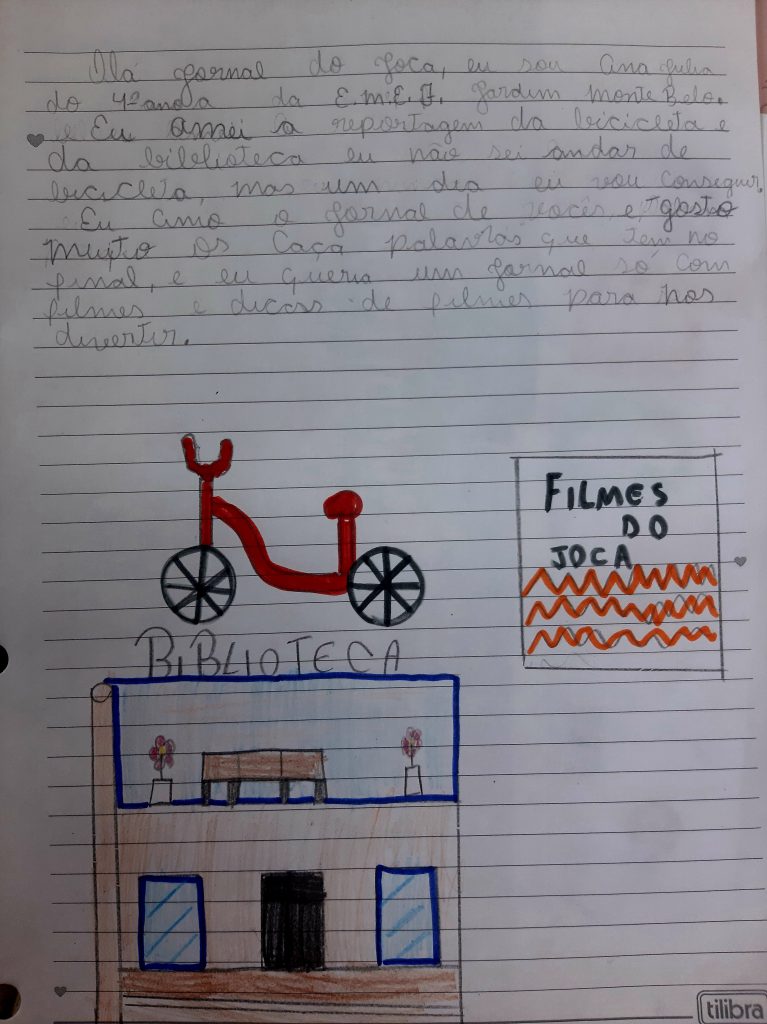 Olá jornal do Joca, eu sou Ana Julia
do 4º ano da E.M.E.F. Jardim Monte Belo.
Eu amei a reportagem da bicicleta e
da biblioteca eu não sei andar de
bicicleta, mas um dia eu vou conseguir.
Eu amo o jornal de vocês, e gosto
muito os caça palavras que tem no
final, e eu queria um jornal só com
filmes e dicas de filmes para nos
divertir.
FILMES
DO
JOCA
BIBLIOTECA
tilibra